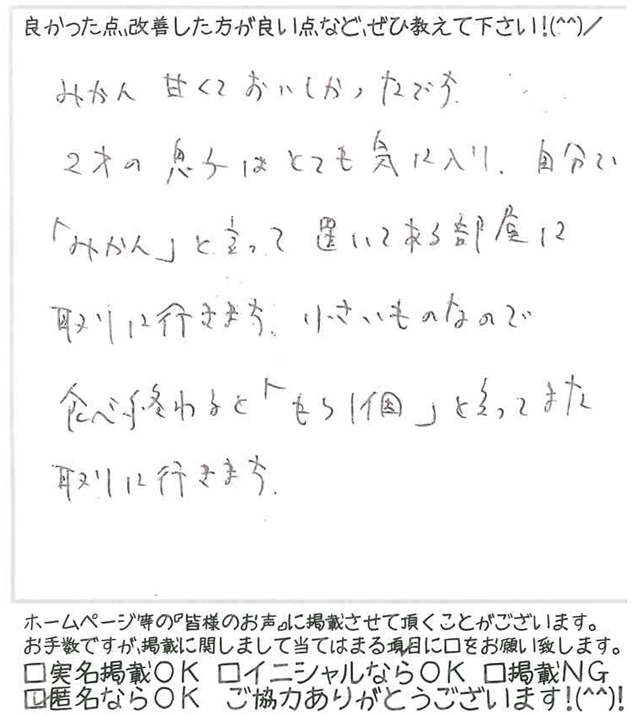 良かった点、改善した方が良い点など、ぜひ教えて下さい!(^^)/
みかん 甘くておいしかったです。
2才の息子はとても気に入り、自分で
「みかん」と言って置いてある部屋に
取りに行きます。小さいものなので
食べ終わると「もう1個」と言ってまた
取りに行きます。
ホームページ等の『皆様のお声』に掲載させて頂くことがございます。
お手数ですが、掲載に関しまして当てはまる項目に☐をお願い致します。
☐実名掲載OK ☐イニシャルならOK ☐掲載NG
☑匿名ならOK ご協力ありがとうございます!(^^)!